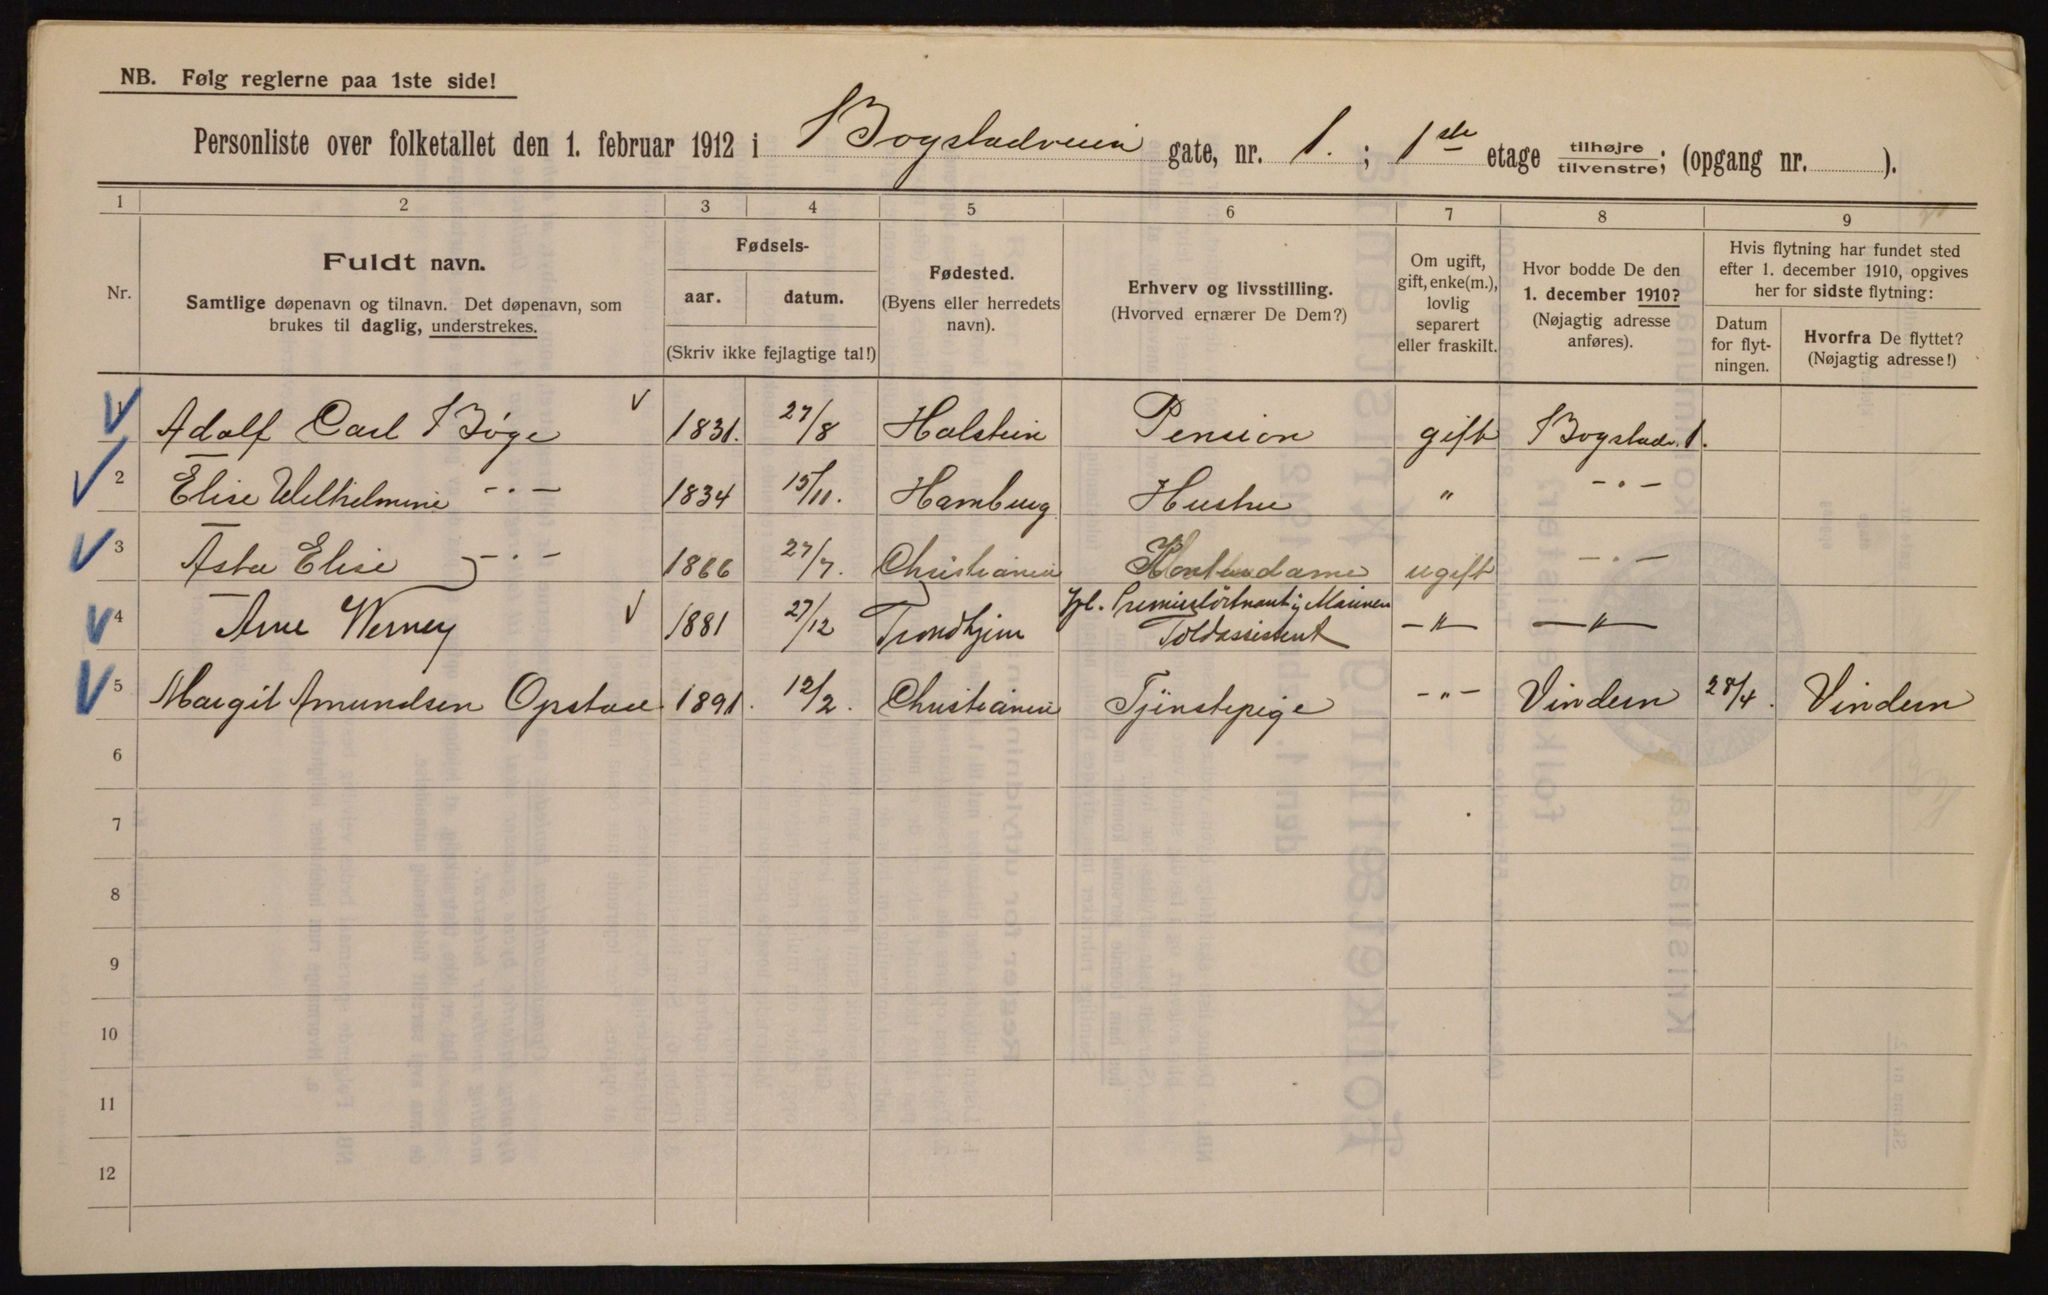 NB. Følg reglerne paa 1ste side!
Personliste over folketallet den 1. februar 1912 i Bogstadveien gate, nr. 1. ; 1ste etage tilhøjre/tilvenstre; (opgang nr. ).
1 2 3 4 5 6 7 8 9
Nr.
Fuldt navn.
Samtlige døpenavn og tilnavn. Det døpenavn, som
brukes til daglig, understrekes.
Fødsels-
aar. datum.
(Skriv ikke fejlagtige tal!)
Fødested.
(Byens eller herredets
navn).
Erhverv og livsstilling.
(Hvorved ernærer De Dem?)
Om ugift,
gift, enke(m.),
lovlig
separert
eller fraskilt.
Hvor bodde De den
1. december 1910?
(Nøjagtig adresse
anføres).
Hvis flytning har fundet sted
efter 1. december 1910, opgives
her for sidste flytning:
Datum
for flyt-
ningen.
Hvorfra De flyttet?
(Nøjagtig adresse!)
1 Adolf Carl Böge 1831. 27/8 Holstein Pension gift Bogstadv. 1.
2 Elise Wilhelmine -"- 1834 15/11. Hamburg Hustru " -"-
3 Asta Elise -"- 1866 27/7. Christiania Kontordame ugift -"-
4 Arne Werney 1881 27/12 Trondhjem Vpl. Premierløitnant i Marinen
Toldassistent -"- -"-
5 Margit Amundsen Opstad 1891. 12/2. Christiania Tjenstepige -"- Vindern 28/4. Vindern
6
7
8
9
10
11
12